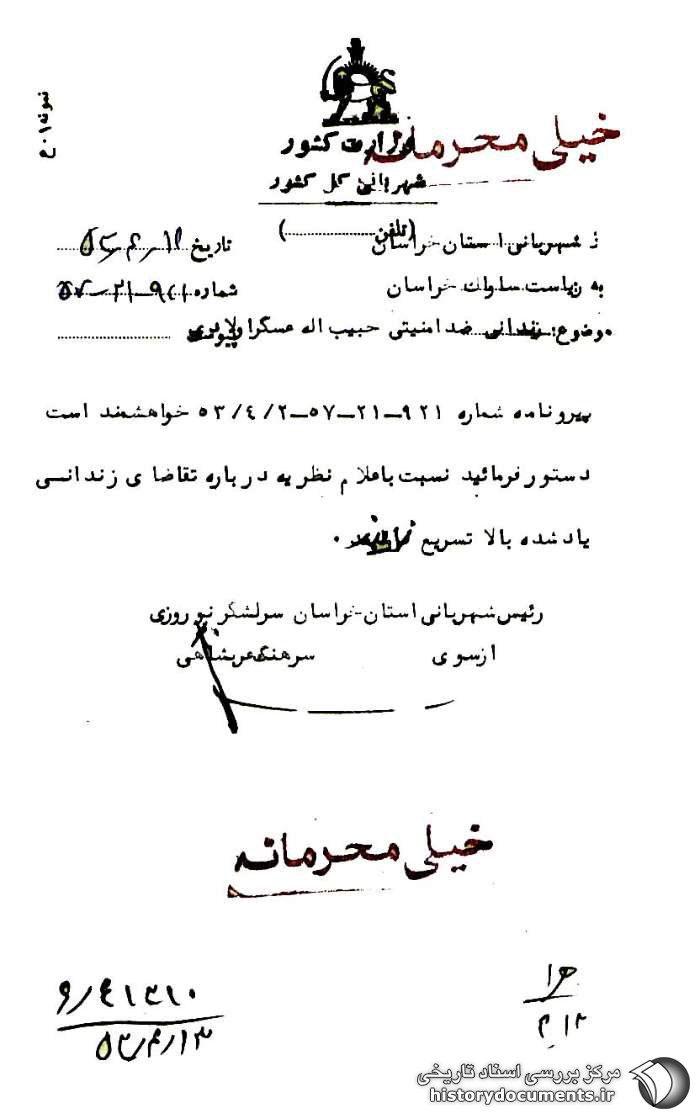 نمونه ۰۱ ع
خیلی محرمانه
وزارت کشور
شهربانی کل کشور
از شهربانی استان خراسان (تلفن ............) تاریخ
به ریاست ساواک خراسان شماره ۹۲۱-۲۱-۵۷
موضوع: زندانی ضد امنیتی حبیب اله عسگراولادی پیوست
پیرو نامه شماره ۹۲۱-۲۱-۵۷-۵۳/۴/۲ خواهشمند است
دستور فرمائید نسبت باعلام نظریه درباره تقاضای زندانسی
یاد شده بالا تسریع نمایند.
رئیس شهربانی استان خراسان سرلشگر نوروزی
از سوی سرهنگ عربشاهی
خیلی محرمانه
۵۳/۴/۱۳
مرکز بررسی اسناد تاریخی
historydocuments.ir